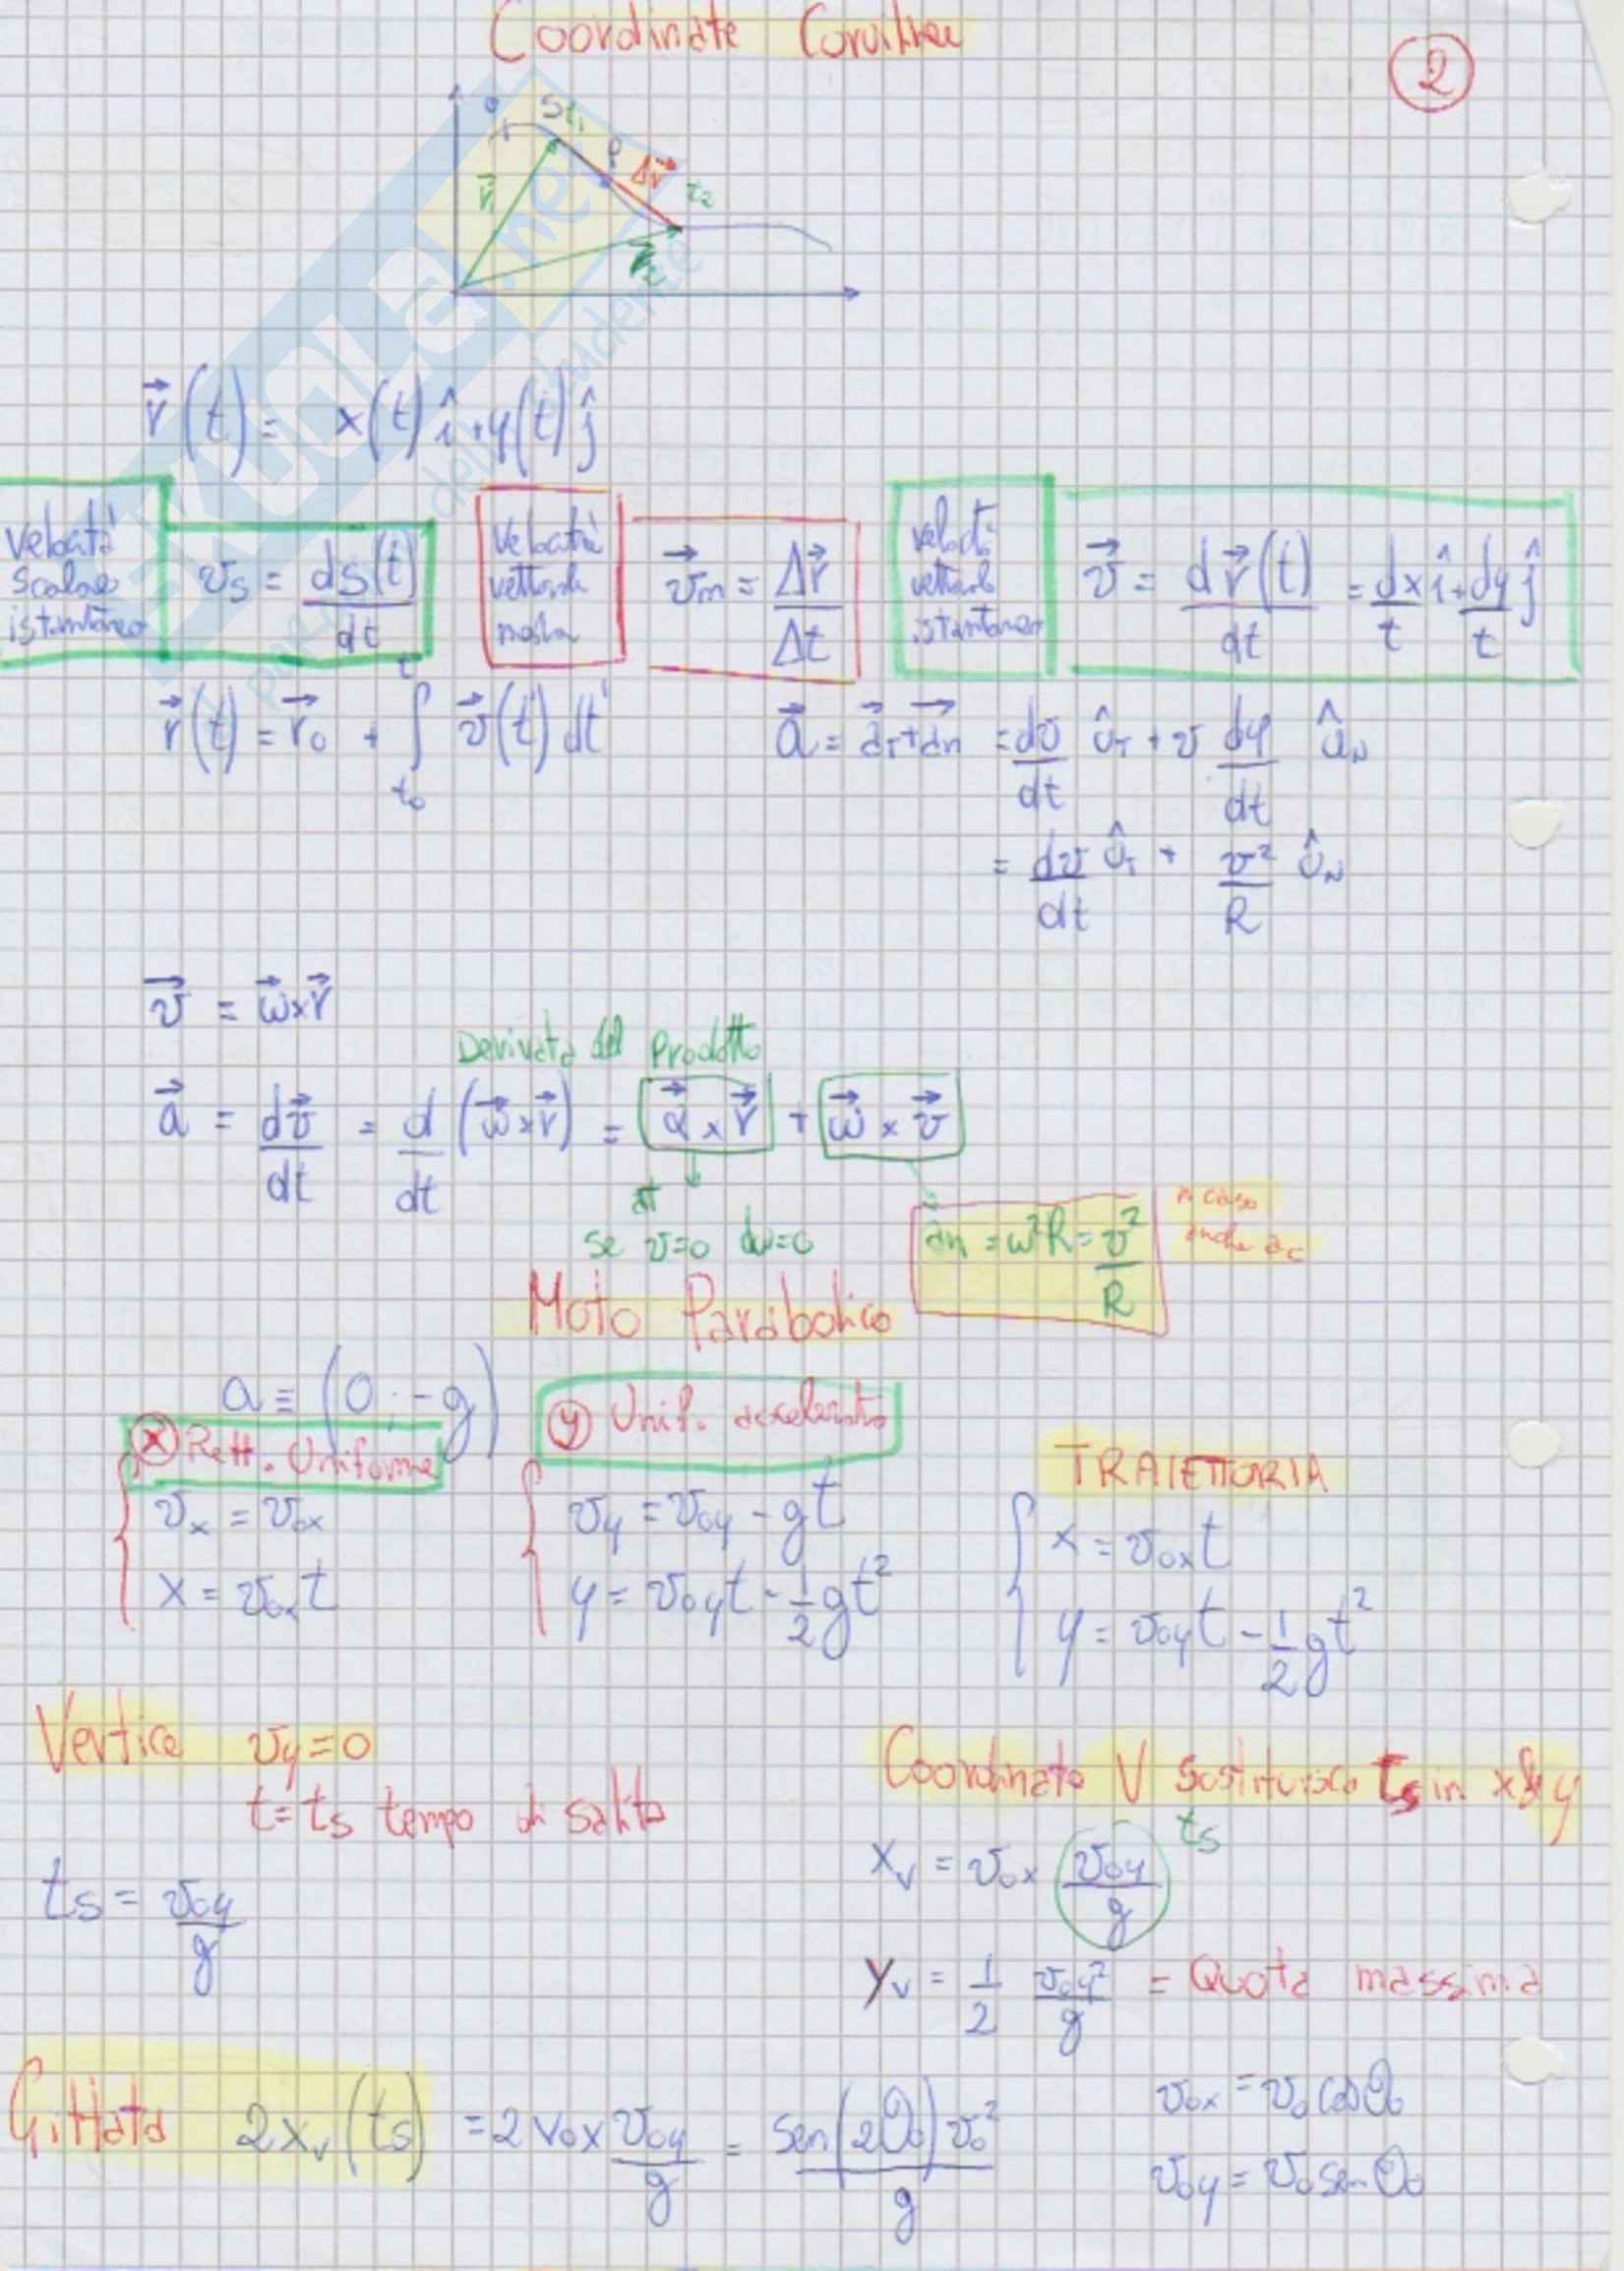 Coordinate Curvilinee
2
O S t₁
P Δr⃗ t₂
r⃗₁
r⃗₂
r⃗(t) = x(t) î + y(t) ĵ
Velocità scalare istantanea
vₛ = ds(t)/dt
Velocità vettoriale media
v⃗m = Δr⃗/Δt
velocità vettoriale istantanea
v⃗ = dr⃗(t)/dt = dx/t î + dy/t ĵ
r⃗(t) = r⃗₀ + ∫ₜ₀ᵗ v⃗(t') dt'
a⃗ = a⃗T + a⃗n = dv/dt ûT + v dφ/dt ûN
= dv/dt ûT + v²/R ûN
v⃗ = ω⃗ × r⃗
Derivata del Prodotto
a⃗ = dv⃗/dt = d/dt (ω⃗ × r⃗) = α⃗ × r⃗ + ω⃗ × v⃗
aT
se v=0 dω=0
an = ω²R = v²/R
anche ac
Moto Parabolico
a = (0; -g)
x Rett. Uniforme
y Unif. accelerato
TRAIETTORIA
vx = v₀x
vy = v₀y - gt
x = v₀xt
x = v₀xt
y = v₀yt - 1/2 gt²
y = v₀yt - 1/2 gt²
Vertice vy = 0
t = ts tempo di salita
Coordinate V sostituisco ts in x & y
ts = v₀y/g
xv = v₀x v₀y/g ts
yv = 1/2 v₀y²/g = Quota massima
Gittata 2xv(ts) = 2v₀x v₀y/g = sen(2θ₀)v₀²/g
v₀x = v₀ cosθ₀
v₀y = v₀ senθ₀
akuna.net